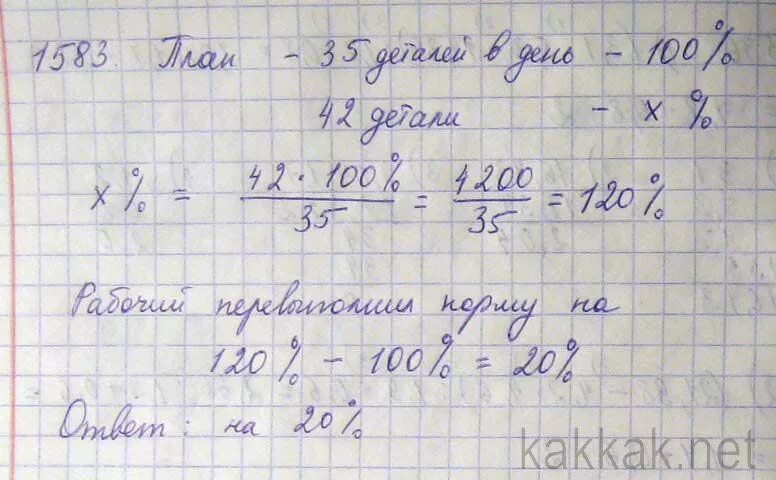 1583. План - 35 деталей в день - 100%
42 детали - x %
x% = 42 · 100% / 35 = 4200 / 35 = 120%
Рабочий перевыполнил норму на
120% - 100% = 20%
Ответ: на 20%
kakkak.net